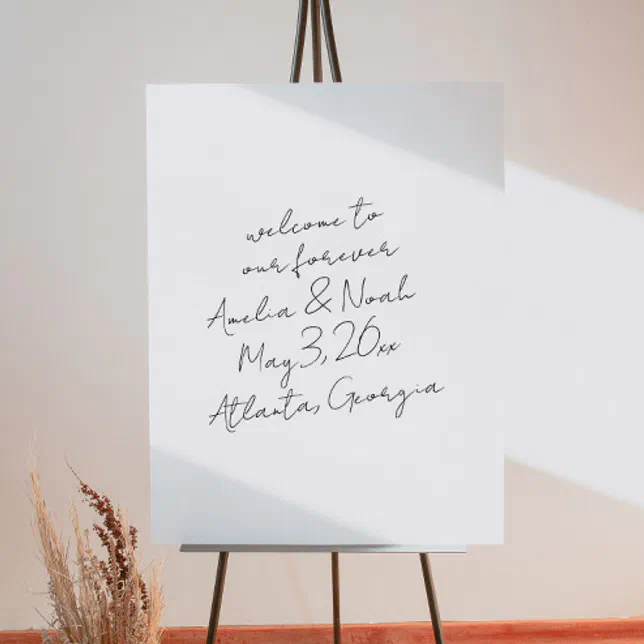 welcome to
our forever
Amelia & Noah
May 3, 26xx
Atlanta, Georgia